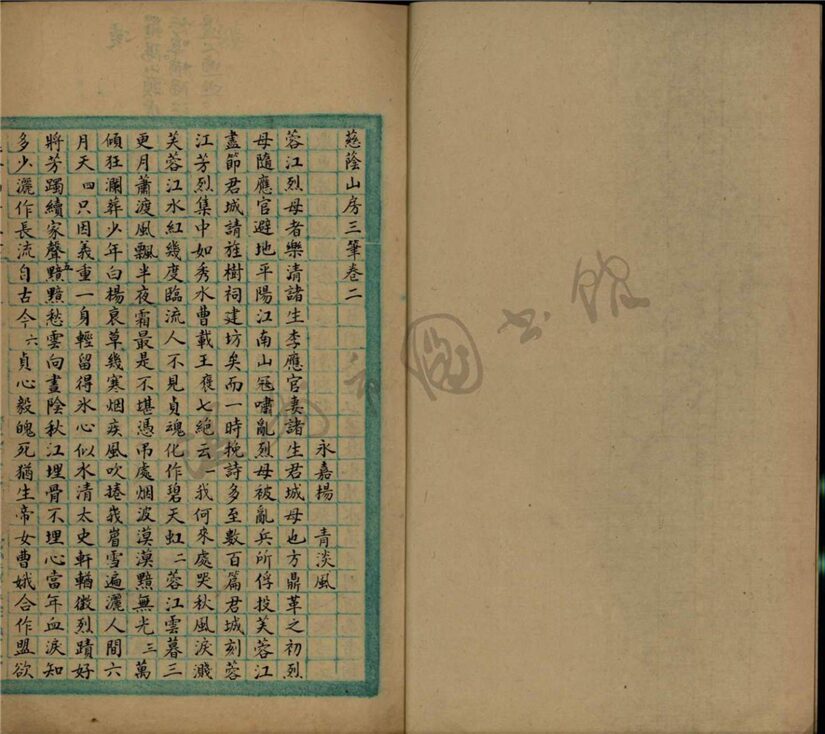 慈蔭山房三筆卷二
永嘉楊 青淡風
蓉江烈母者樂清諸生李應官妻諸生君城母也方鼎革之初烈
母隨應官避地平陽江南山冦嘯亂烈母被亂兵所俘投芙蓉江
盡節君城請旌樹祠建坊矣而一時挽詩多至數百篇君城刻蓉
江芳烈集中如秀水曹載王襃七絕云一我何來處哭秋風淚濺
芙蓉江水紅幾度臨流人不見貞魂化作碧天虹二蓉江雲暮三
更月蕭渡風飄半夜霜最是不堪憑吊處烟波漠漠黯無光三萬
傾狂瀾葬少年白楊哀草幾寒烟疾風吹捲峩嵋雪遍灑人間六
月天四只因義重一身輕留得氷心似水清太史軒輶徵烈蹟好
將芳躅續家聲五黯黯愁雲向晝陰秋江埋骨不埋心當年血淚知
多少灑作長流自古今六貞心毅魄死猶生帝女曹娥合作盟欲